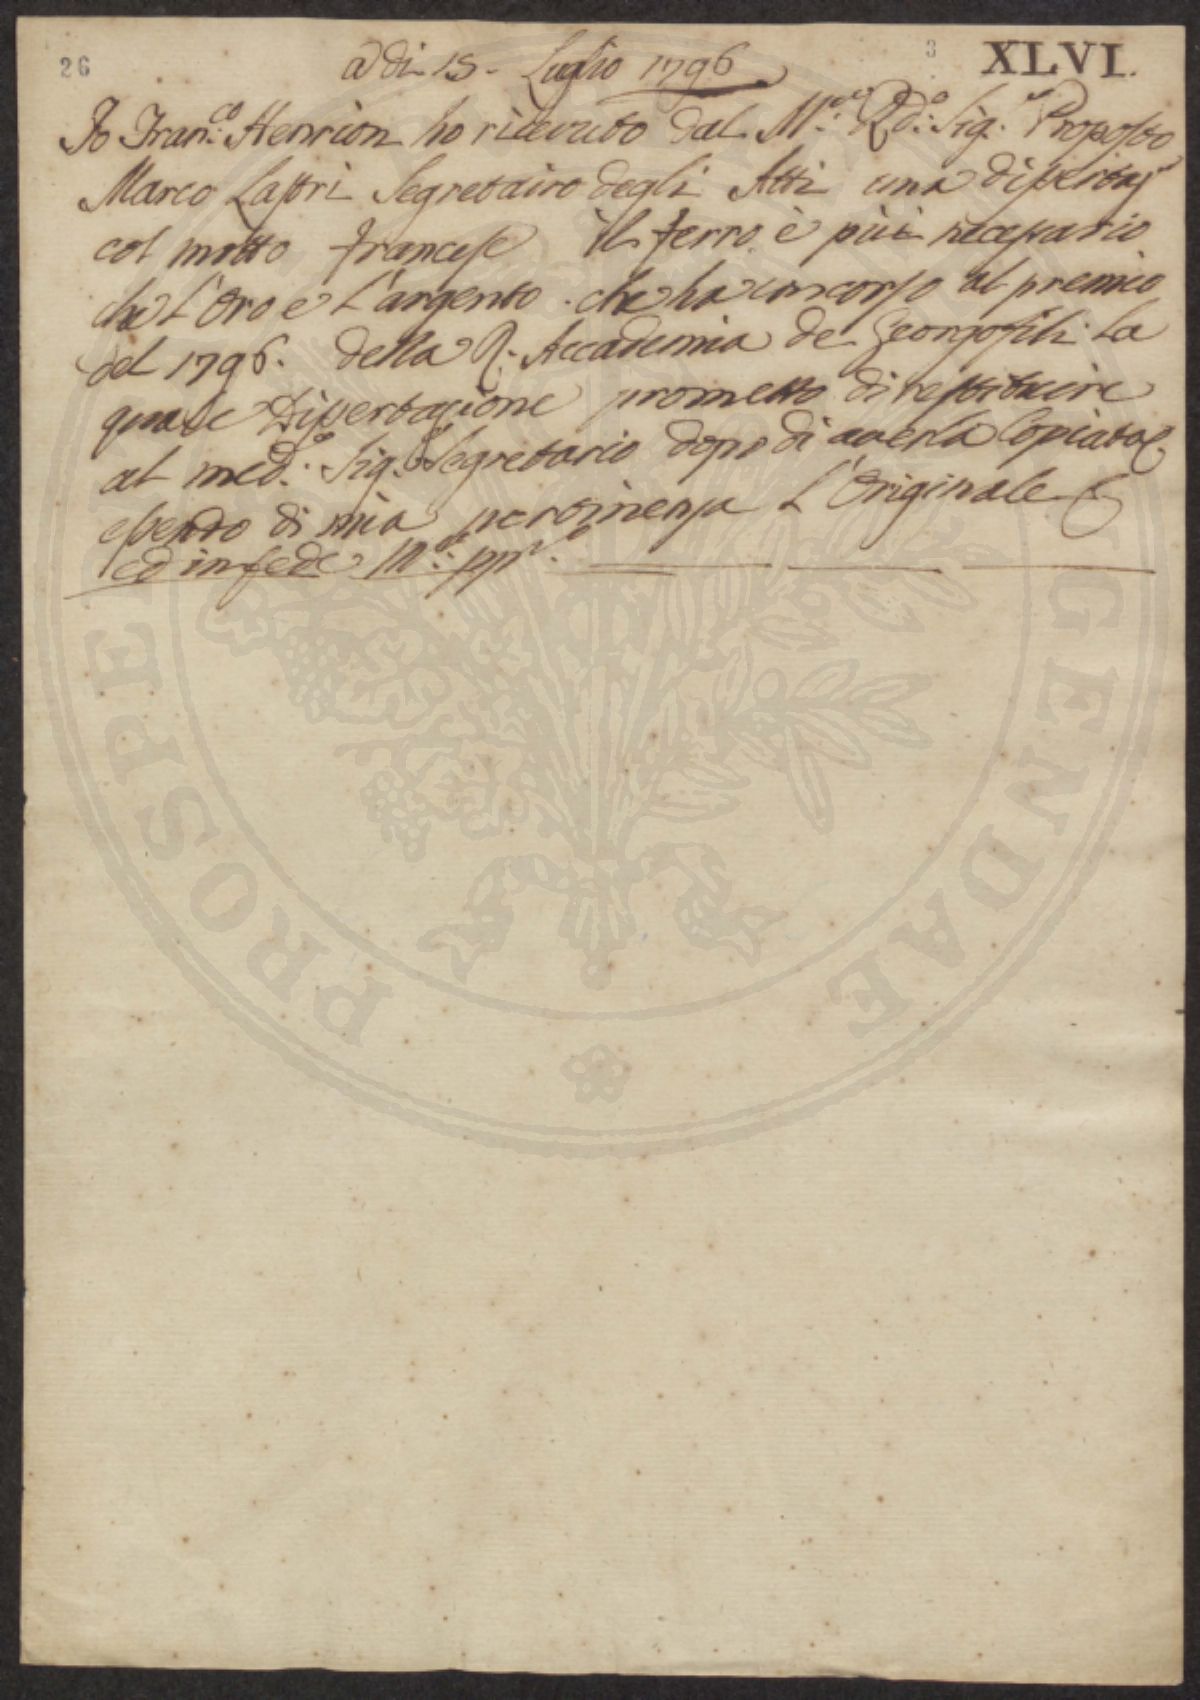 26
3
XLVI.
a dì 15. Luglio 1796
Io Fran.co Henrion ho ricevuto dal M.to Rd.o Sig.re Proposto
Marco Lastri Segretairo degli Atti una dissertaz.e
col motto francese il ferro è più necessario
che l'Oro e l'argento. che ha concorso al premio
del 1796. della R. Accademia de Georgofili. la
quale Dissertazione prometto di restituire
al med.o Sig.re Segretario dopo di averla Copiata
essendo di mia pertinenza l'Originale
ed in fede M.o pp.a
PROSPERITATI PUBLICAE AUGENDAE